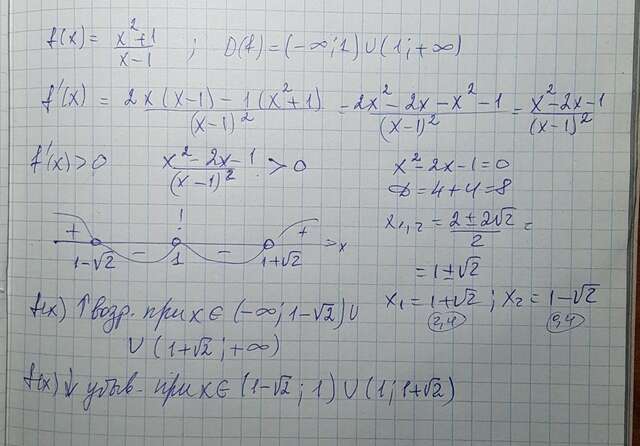 f(x) = (x²+1)/(x-1) ; D(f) = (-∞; 1) ∪ (1; +∞)
f'(x) = (2x(x-1) - 1(x²+1))/(x-1)² = (2x² - 2x - x² - 1)/(x-1)² = (x² - 2x - 1)/(x-1)²
f'(x) > 0 (x² - 2x - 1)/(x-1)² > 0
+ - - + x
1-√2 1 1+√2
x² - 2x - 1 = 0
D = 4 + 4 = 8
x₁,₂ = (2 ± 2√2)/2 =
= 1 ± √2
x₁ = 1+√2 ; x₂ = 1-√2
2,4
f(x) ↑ возр. при x ∈ (-∞; 1-√2) ∪
∪ (1+√2; +∞)
f(x) ↓ убыв. при x ∈ (1-√2; 1) ∪ (1; 1+√2)